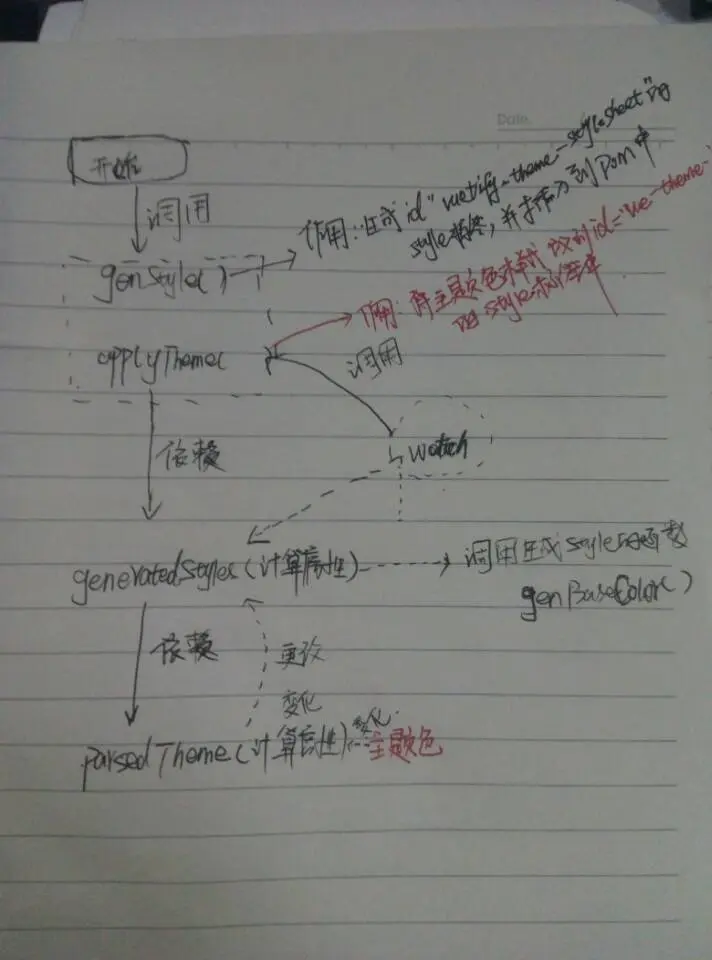 Date.
开始
调用
作用:生成id"vuetify-theme-stylesheet"的
style标签,并插入到DOM中
genStyle()
作用:将主题色 成到id="vue-theme-
的style标签中
applyTheme(
调用
依赖
watch
generatedStyles(计算属性)
调用生成style的函数
genBaseColor()
依赖
更改
变化
parsedTheme(计算属性)
变化
主题色